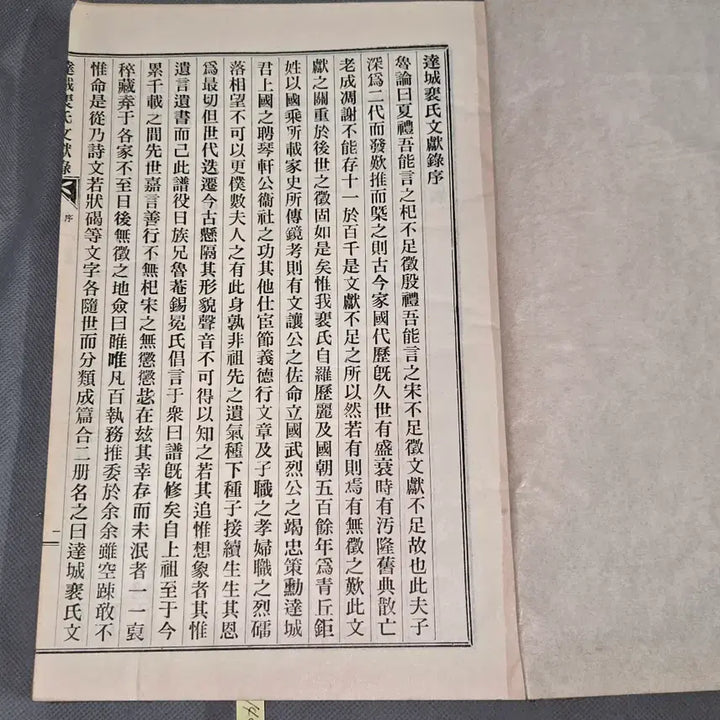 達城裴氏文獻錄序
魯論曰夏禮吾能言之杞不足徵殷禮吾能言之宋不足徵文獻不足故也此夫子
深爲二代而發歎推而槩之則古今家國代歷旣久世有盛衰時有汚隆舊典散亡
老成凋謝不能存十一於百千是文獻不足之所以然若有則焉有無徵之歎此文
獻之關重於後世之徵固如是矣惟我裴氏自羅歷麗及國朝五百餘年爲靑丘鉅
姓以國乘所載家史所傳鏡考則有文讓公之佐命立國武烈公之竭忠策勳達城
君上國之聘琴軒公衛社之功其他仕宦節義德行文章及子職之孝婦職之烈磊
落相望不可以更僕數夫人之有此身孰非祖先之遺氣種下種子接續生生其恩
爲最切但世代迭遷今古懸隔其形貌聲音不可得以知之若其追惟想象者其惟
遺言遺書而己此譜役日族兄魯菴錫冕氏倡言于衆曰譜旣修矣自上祖至于今
累千載之間先世嘉言善行不無杞宋之無懲懲毖在玆其幸存而未泯者一一裒
稡藏弆于各家不至日後無徵之地僉曰唯唯凡百執務推委於余余雖空踈敢不
惟命是從乃詩文若狀碣等文字各隨世而分類成篇合二册名之曰達城裴氏文
達城裴氏文獻錄
序
一